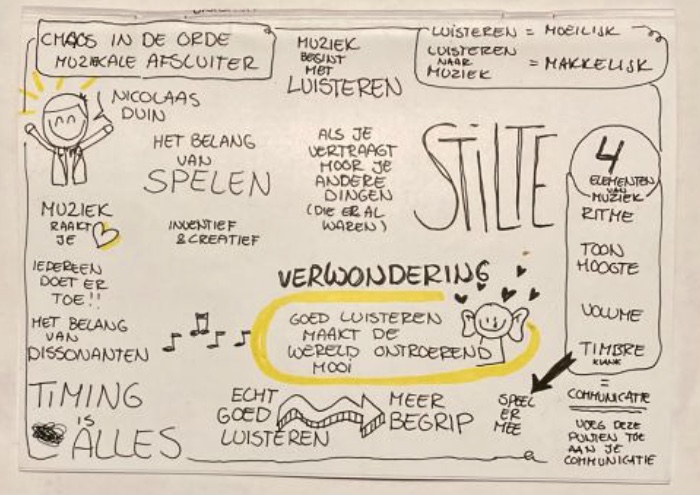 CHAOS IN DE ORDE
MUZIEKALE AFSLUITER
MUZIEK
BEGINT
MET
LUISTEREN
LUISTEREN = MOEILIJK
LUISTEREN
NAAR
MUZIEK
= MAKKELIJK
NICOLAAS
DUIN
HET BELANG
VAN
SPELEN
ALS JE
VERTRAAGT
HOOR JE
ANDERE
DINGEN
(DIE ER AL
WAREN)
STILTE
4
ELEMENTEN
VAN
MUZIEK
RITME
TOON
HOOGTE
VOLUME
TIMBRE
KLANK
=
COMMUNICATIE
VOEG DEZE
PUNTEN TOE
AAN JE
COMMUNICATIE
MUZIEK
RAAKT
JE
INVENTIEF
& CREATIEF
IEDEREEN
DOET ER
TOE!!
VERWONDERING
GOED LUISTEREN
MAAKT DE
WERELD ONTROEREND
MOOI
HET BELANG
VAN
DISSONANTEN
TIMING
IS
ALLES
ECHT
GOED
LUISTEREN
MEER
BEGRIP
SPEEL
ER
MEE